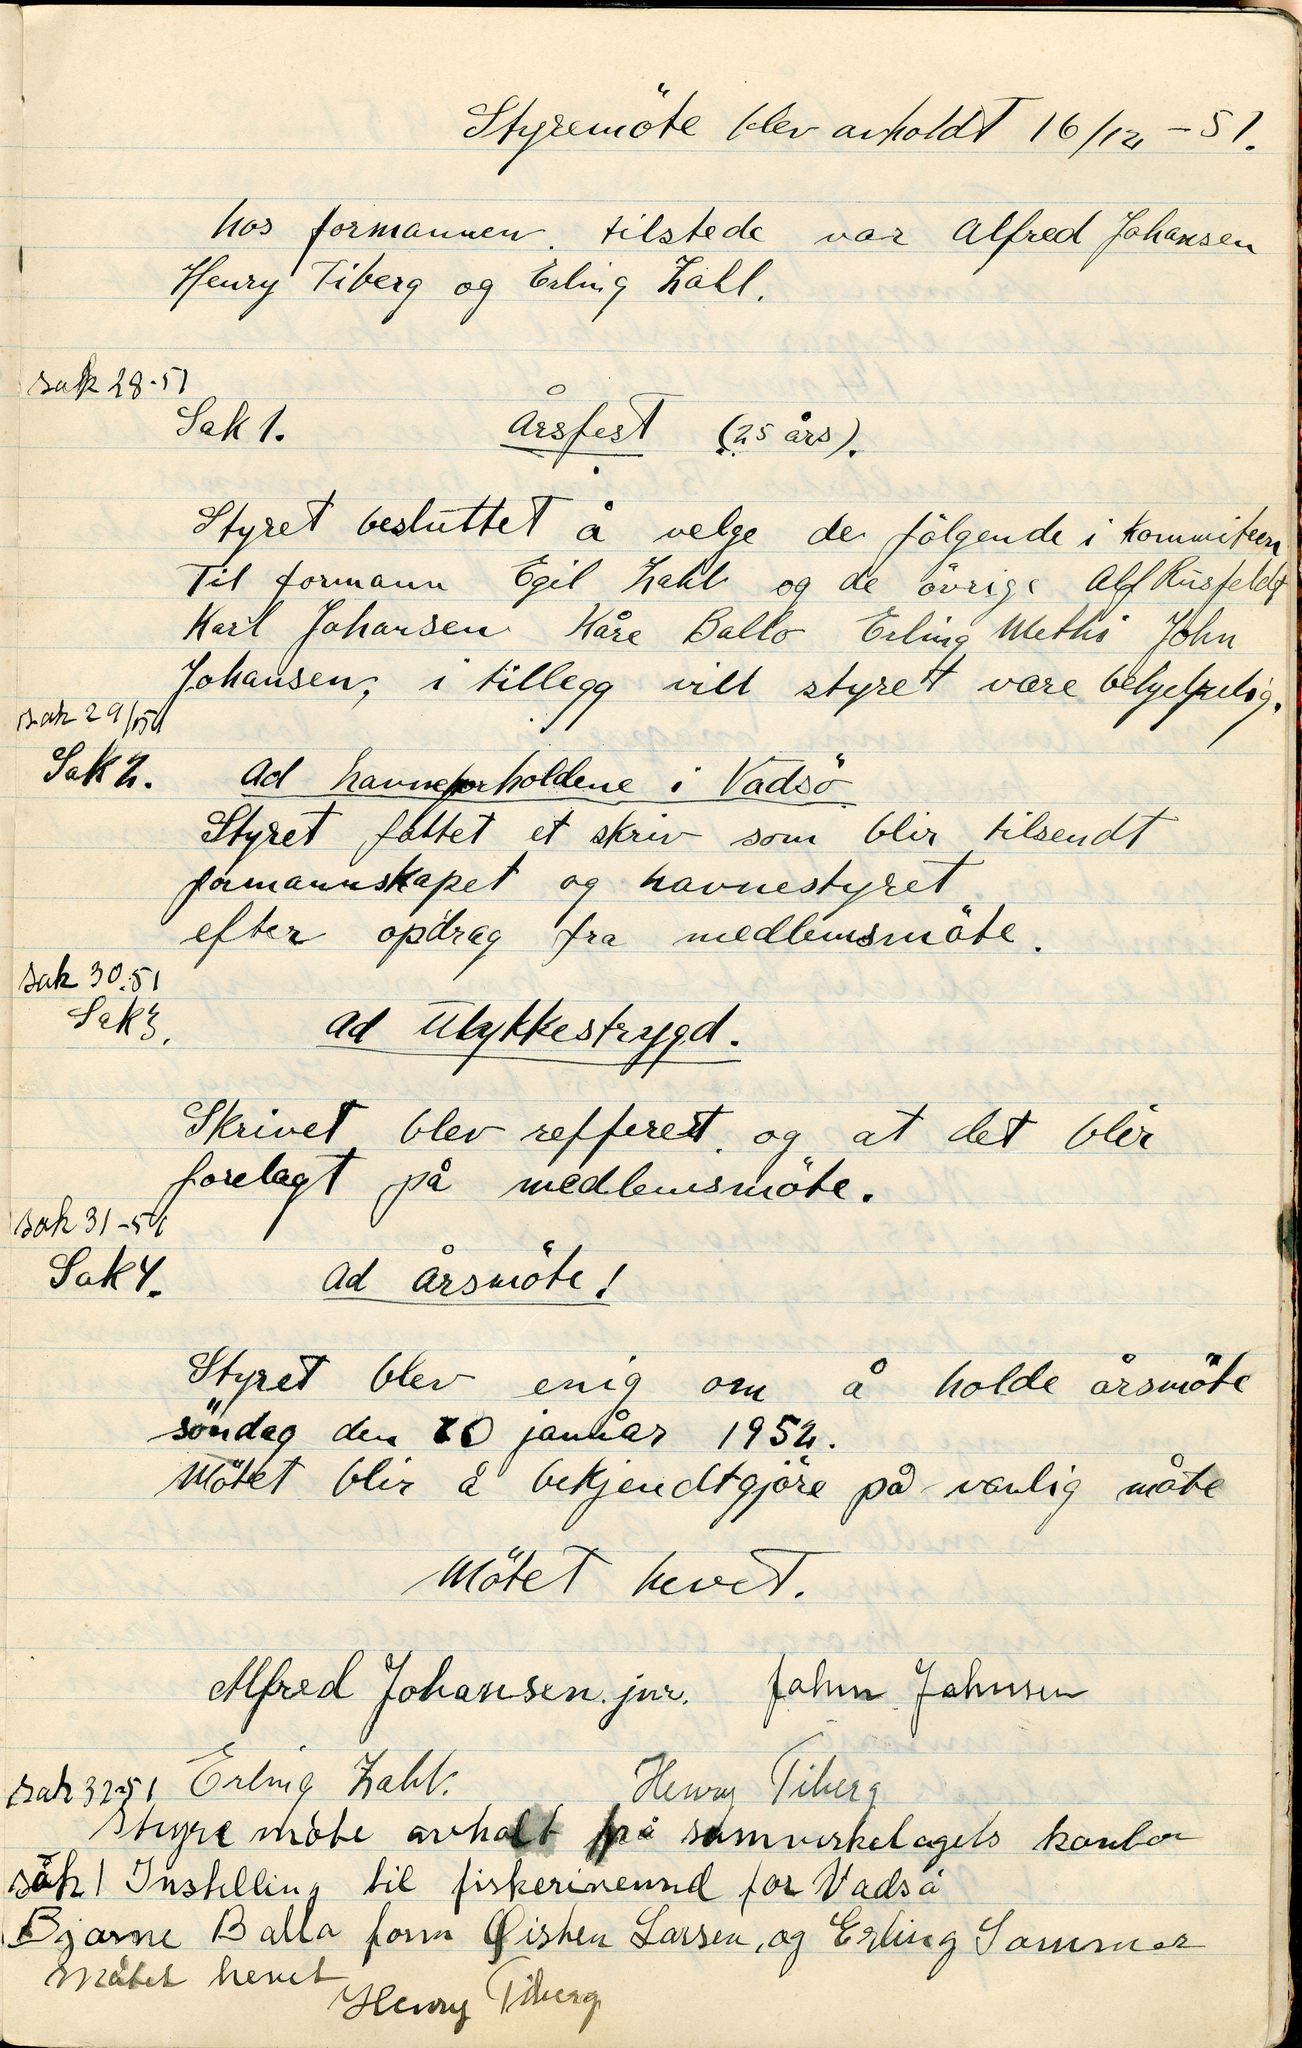 Styremöte blev avholdt 16/12 - 51.
hos formannen. tilstede var Alfred Johansen
Henry Tiberg og Erling Zahl.
sak 28-51
Sak 1. Årsfest (25 års).
Styret besluttet å velge de fölgende i Kommiteen
Til formann Egil Zahl og de övrige Alf Rusfeldt
Karl Johansen Kåre Ballo Erling Methi John
Johansen, i tillegg vill styret være behjelpelig.
sak 29/51
Sak 2. Ad havneforholdene i Vadsö
Styret fattet et skriv som blir tilsendt
formannskapet og havnestyret
efter opdrag fra medlemsmöte.
sak 30.51
Sak 3. Ad Ulykkestrygd.
Skrivet blev refferert. og at det blir
forelagt på medlemsmöte.
sak 31-51
Sak 4. Ad årsmöte!
Styret blev enig om å holde årsmöte
söndag den 20 januar 1952.
Mötet blir å bekjendtgjöre på vanlig måte
Mötet hevet.
Alfred Johansen. jnr. John Johnsen
sak 32-51 Erling Zahl. Henry Tiberg
Styre möte avholt på samvirkelagets kontor
sak 1 Instilling til fiskerinemnd for Vadsö
Bjarne Balla form Øisten Larsen, og Erling Sommer
Mötet hevet
Henry Tiberg